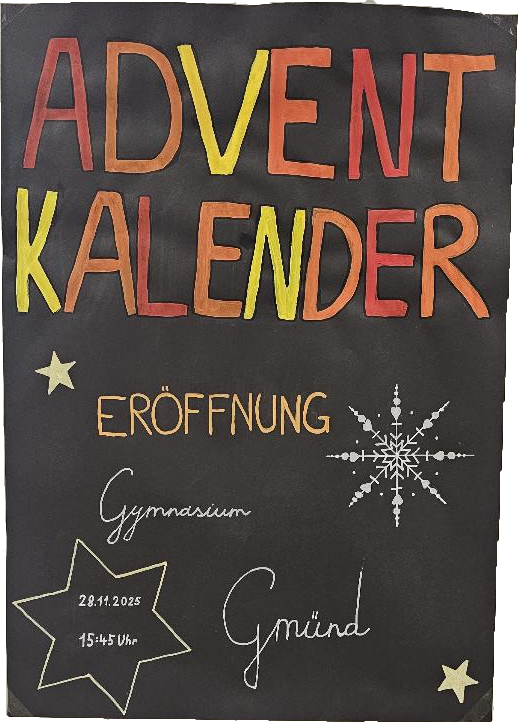 ADVENT
KALENDER
ERÖFFNUNG
Gymnasium
Gmünd
28.11.2025
15:45 Uhr